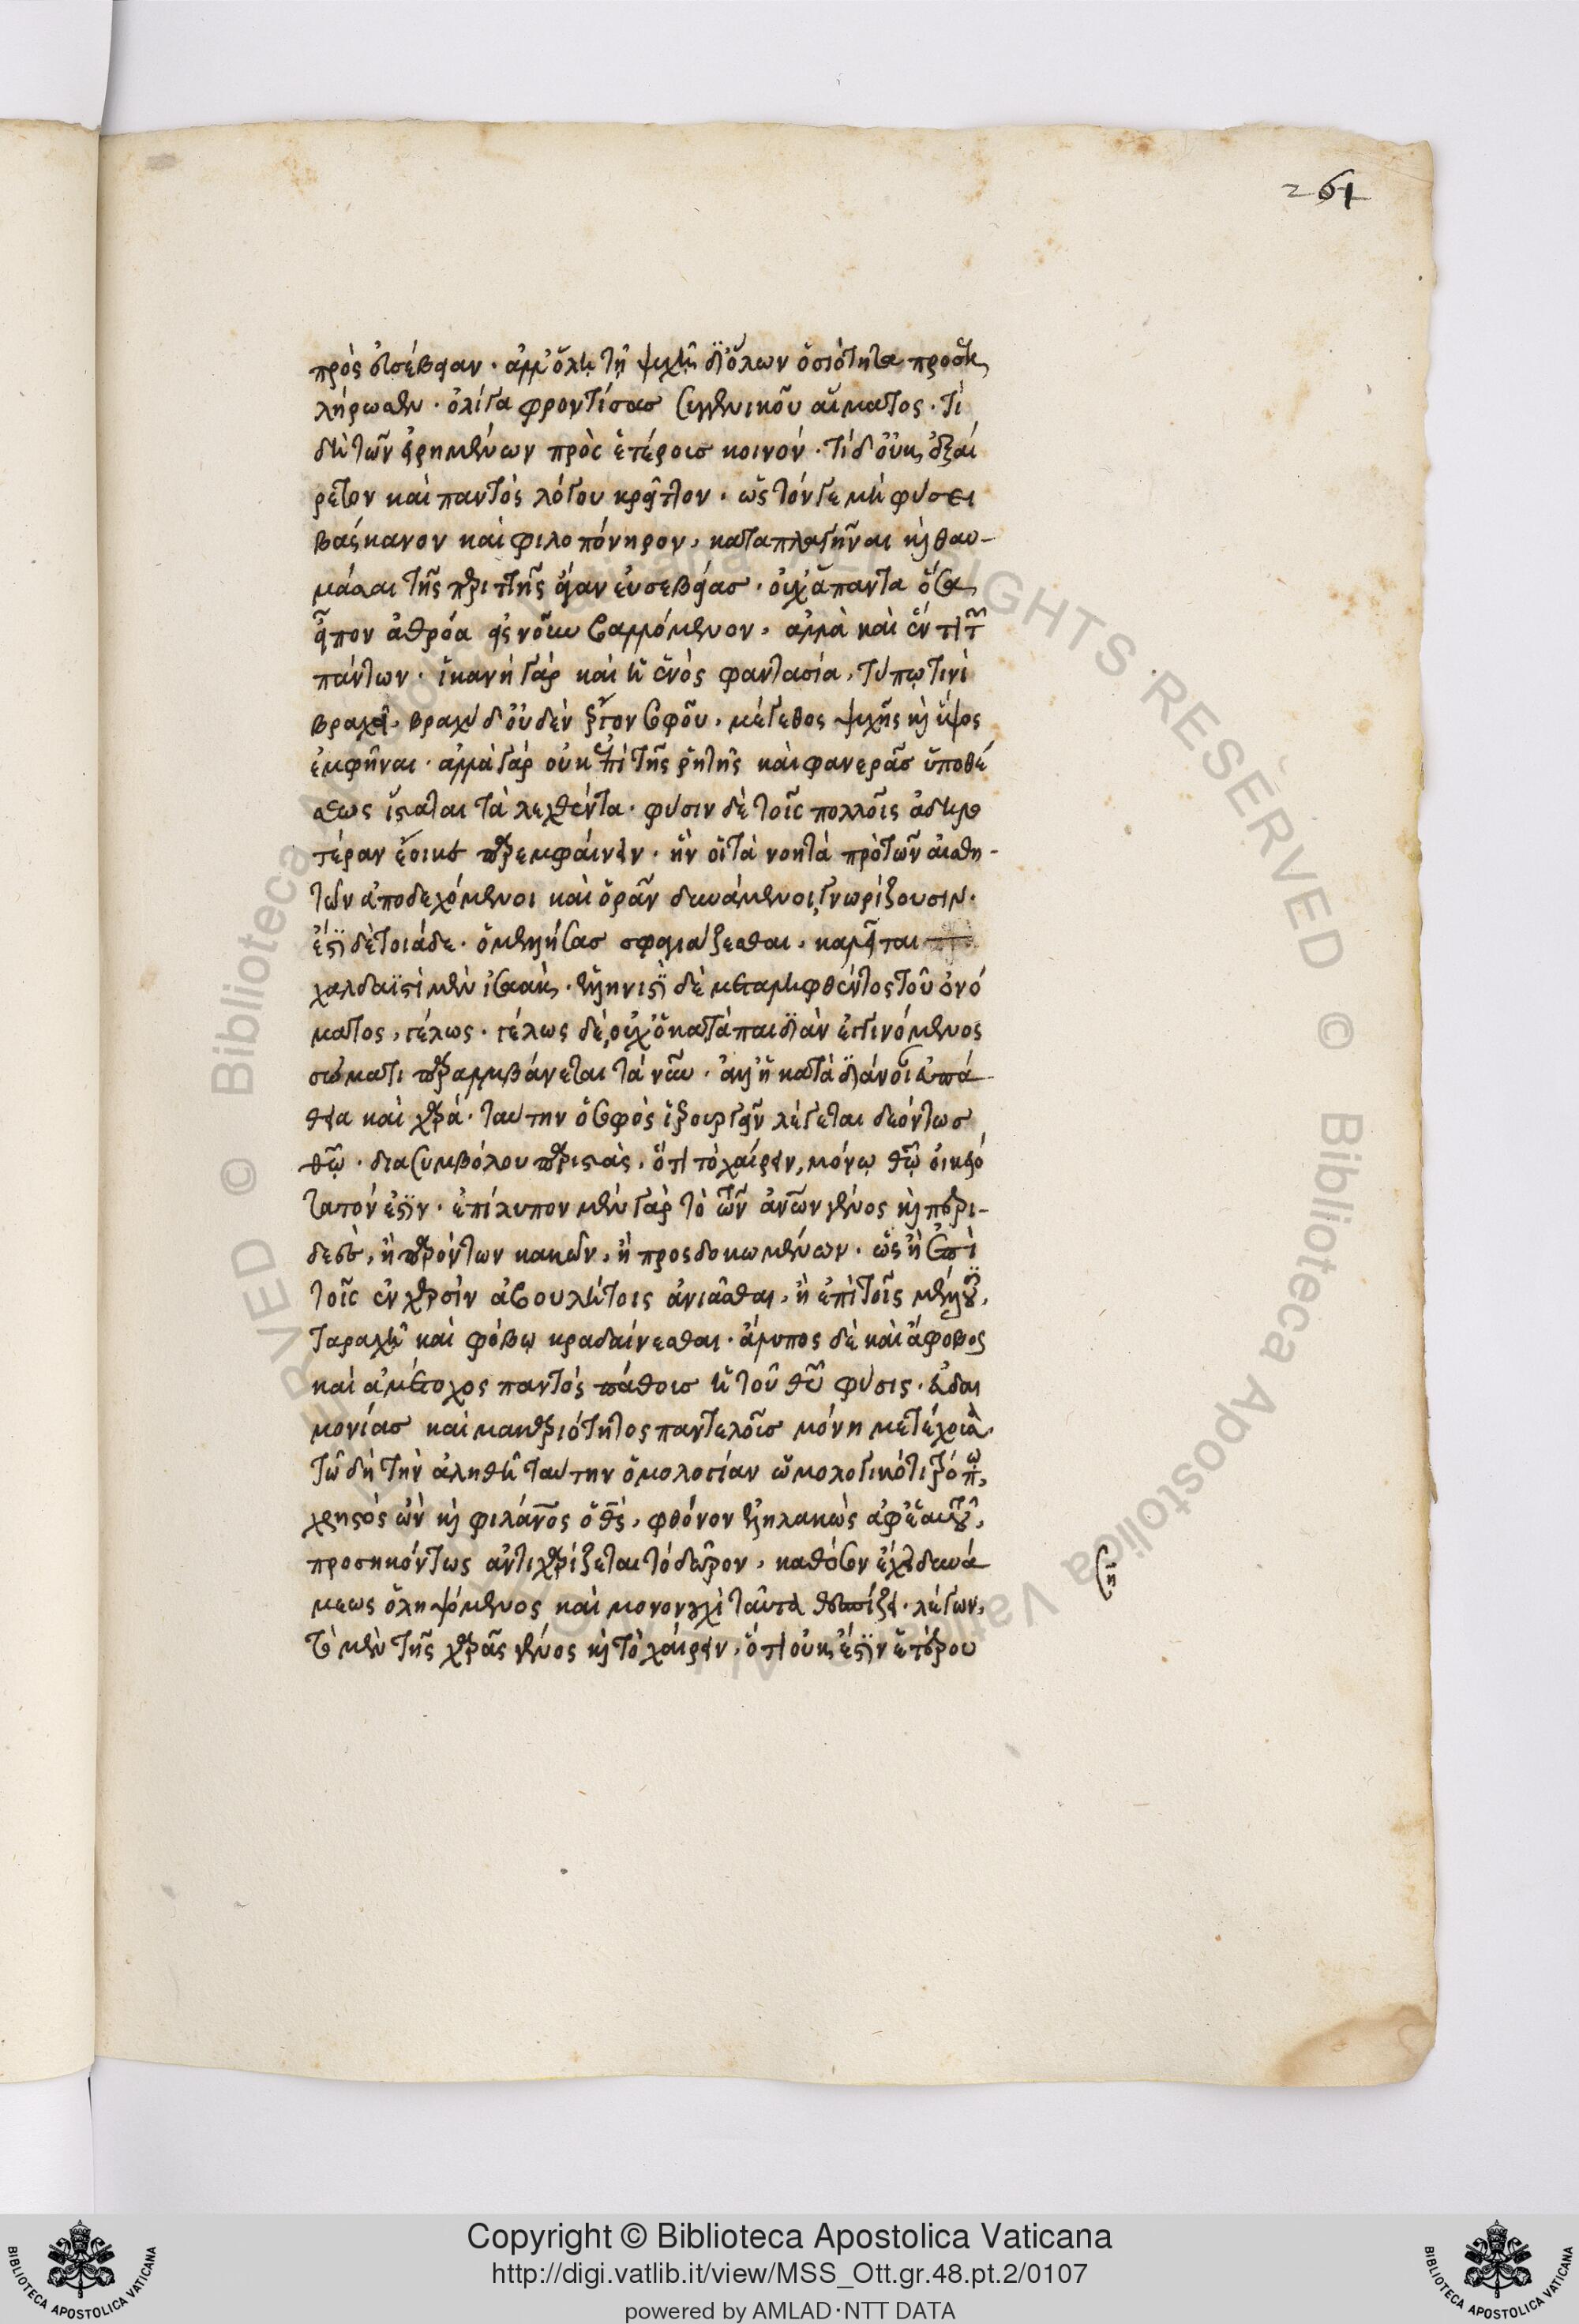 261
πρὸς εὐσέβειαν· ἀλλ' ὅλῃ τῇ ψυχῇ δι' ὅλων ὁσιότητα προσεκ
λήρωσεν· ὀλίγα φροντίσας συγγενικοῦ αἵματος· τί
δὴ τῶν εἰρημένων πρὸς ἑτέροις κοινόν· τί δ' οὐκ ἐξαί
ρετον καὶ παντὸς λόγου κρεῖττον· ὡς τόν γε μὴ φύσει
βάσκανον καὶ φιλοπόνηρον, καταπλαγῆναι καὶ θαυ-
μάσαι τῆς περιττῆς ἄγαν εὐσεβείας· οὐχ ἅπαντα ὅσα
εἶπον ἀθρόα εἰς νοῦν βαλλόμενον, ἀλλὰ καὶ ἕν τι τῶν
πάντων· ἱκανὴ γὰρ καὶ ἡ ἑνὸς φαντασία, τύπῳ τινὶ
βραχεῖ, βραχὺ δ' οὐδὲν ἔργον σοφοῦ, μέγεθος ψυχῆς καὶ ὕψος
ἐμφῆναι· ἀλλὰ γὰρ οὐκ ἐπὶ τῆς ῥητῆς καὶ φανερᾶς ὑποθέ
σεως ἵσταται τὰ λεχθέντα· φύσιν δὲ τοῖς πολλοῖς ἀδηλο
τέραν ἔοικε παρεμφαίνειν· ἣν οἱ τὰ νοητὰ πρὸ τῶν αἰσθη-
τῶν ἀποδεχόμενοι καὶ ὁρᾶν δυνάμενοι, γνωρίζουσιν·
ἔστι δὲ τοιάδε· ὁ μελλήσας σφαγιάζεσθαι, καλεῖται
χαλδαϊστὶ μὲν ἰσαάκ· ἑλληνιστὶ δὲ μεταληφθέντος τοῦ ὀνό
ματος, γέλως· γέλως δὲ, οὐχ ὁ κατὰ παιδιὰν ἐγγινόμενος
σώματι παραλαμβάνεται τὰ νῦν· ἀλλ' ἡ κατὰ διάνοιαν εὐπά
θεια καὶ χαρά· ταύτην ὁ σοφὸς ἱερουργεῖν λέγεται δεόντως
θεῷ· διὰ συμβόλου παριστὰς, ὅτι τὸ χαίρειν, μόνῳ θεῷ οἰκειό
τατόν ἐστιν· ἐπίλυπον μὲν γὰρ τὸ τῶν ἀνθρώπων γένος καὶ περι-
δεὲς, ἢ παρόντων κακῶν, ἢ προσδοκωμένων· ὡς ἢ ἐπὶ
τοῖς ἐν χερσὶν ἀβουλήτοις ἀνιᾶσθαι, ἢ ἐπὶ τοῖς μέλλουσι,
ταραχῇ καὶ φόβῳ κραδαίνεσθαι· ἄλυπος δὲ καὶ ἄφοβος
καὶ ἀμέτοχος παντὸς πάθους ἡ τοῦ θεοῦ φύσις· εὐδαι
μονίας καὶ μακαριότητος παντελοῦς μόνη μετέχουσα·
τῷ δὴ τὴν ἀληθῆ ταύτην ὁμολογίαν ὡμολογηκότι τρόπῳ,
χρηστὸς ὢν καὶ φιλάνθρωπος ὁ θεὸς, φθόνον ἐληλακὼς ἀφ' ἑαυτοῦ,
προσηκόντως ἀντιχαρίζεται τὸ δῶρον, καθόσον ἔχει δυνά
μεως ὁ ληψόμενος καὶ μονονουχὶ ταῦτα θεσπίζει· λέγων,
τὸ μὲν τῆς χαρᾶς γένος καὶ τὸ χαίρειν, ὅτι οὐκ ἔστιν ἑτέρου
Copyright © Biblioteca Apostolica Vaticana
http://digi.vatlib.it/view/MSS_Ott.gr.48.pt.2/0107
powered by AMLAD·NTT DATA